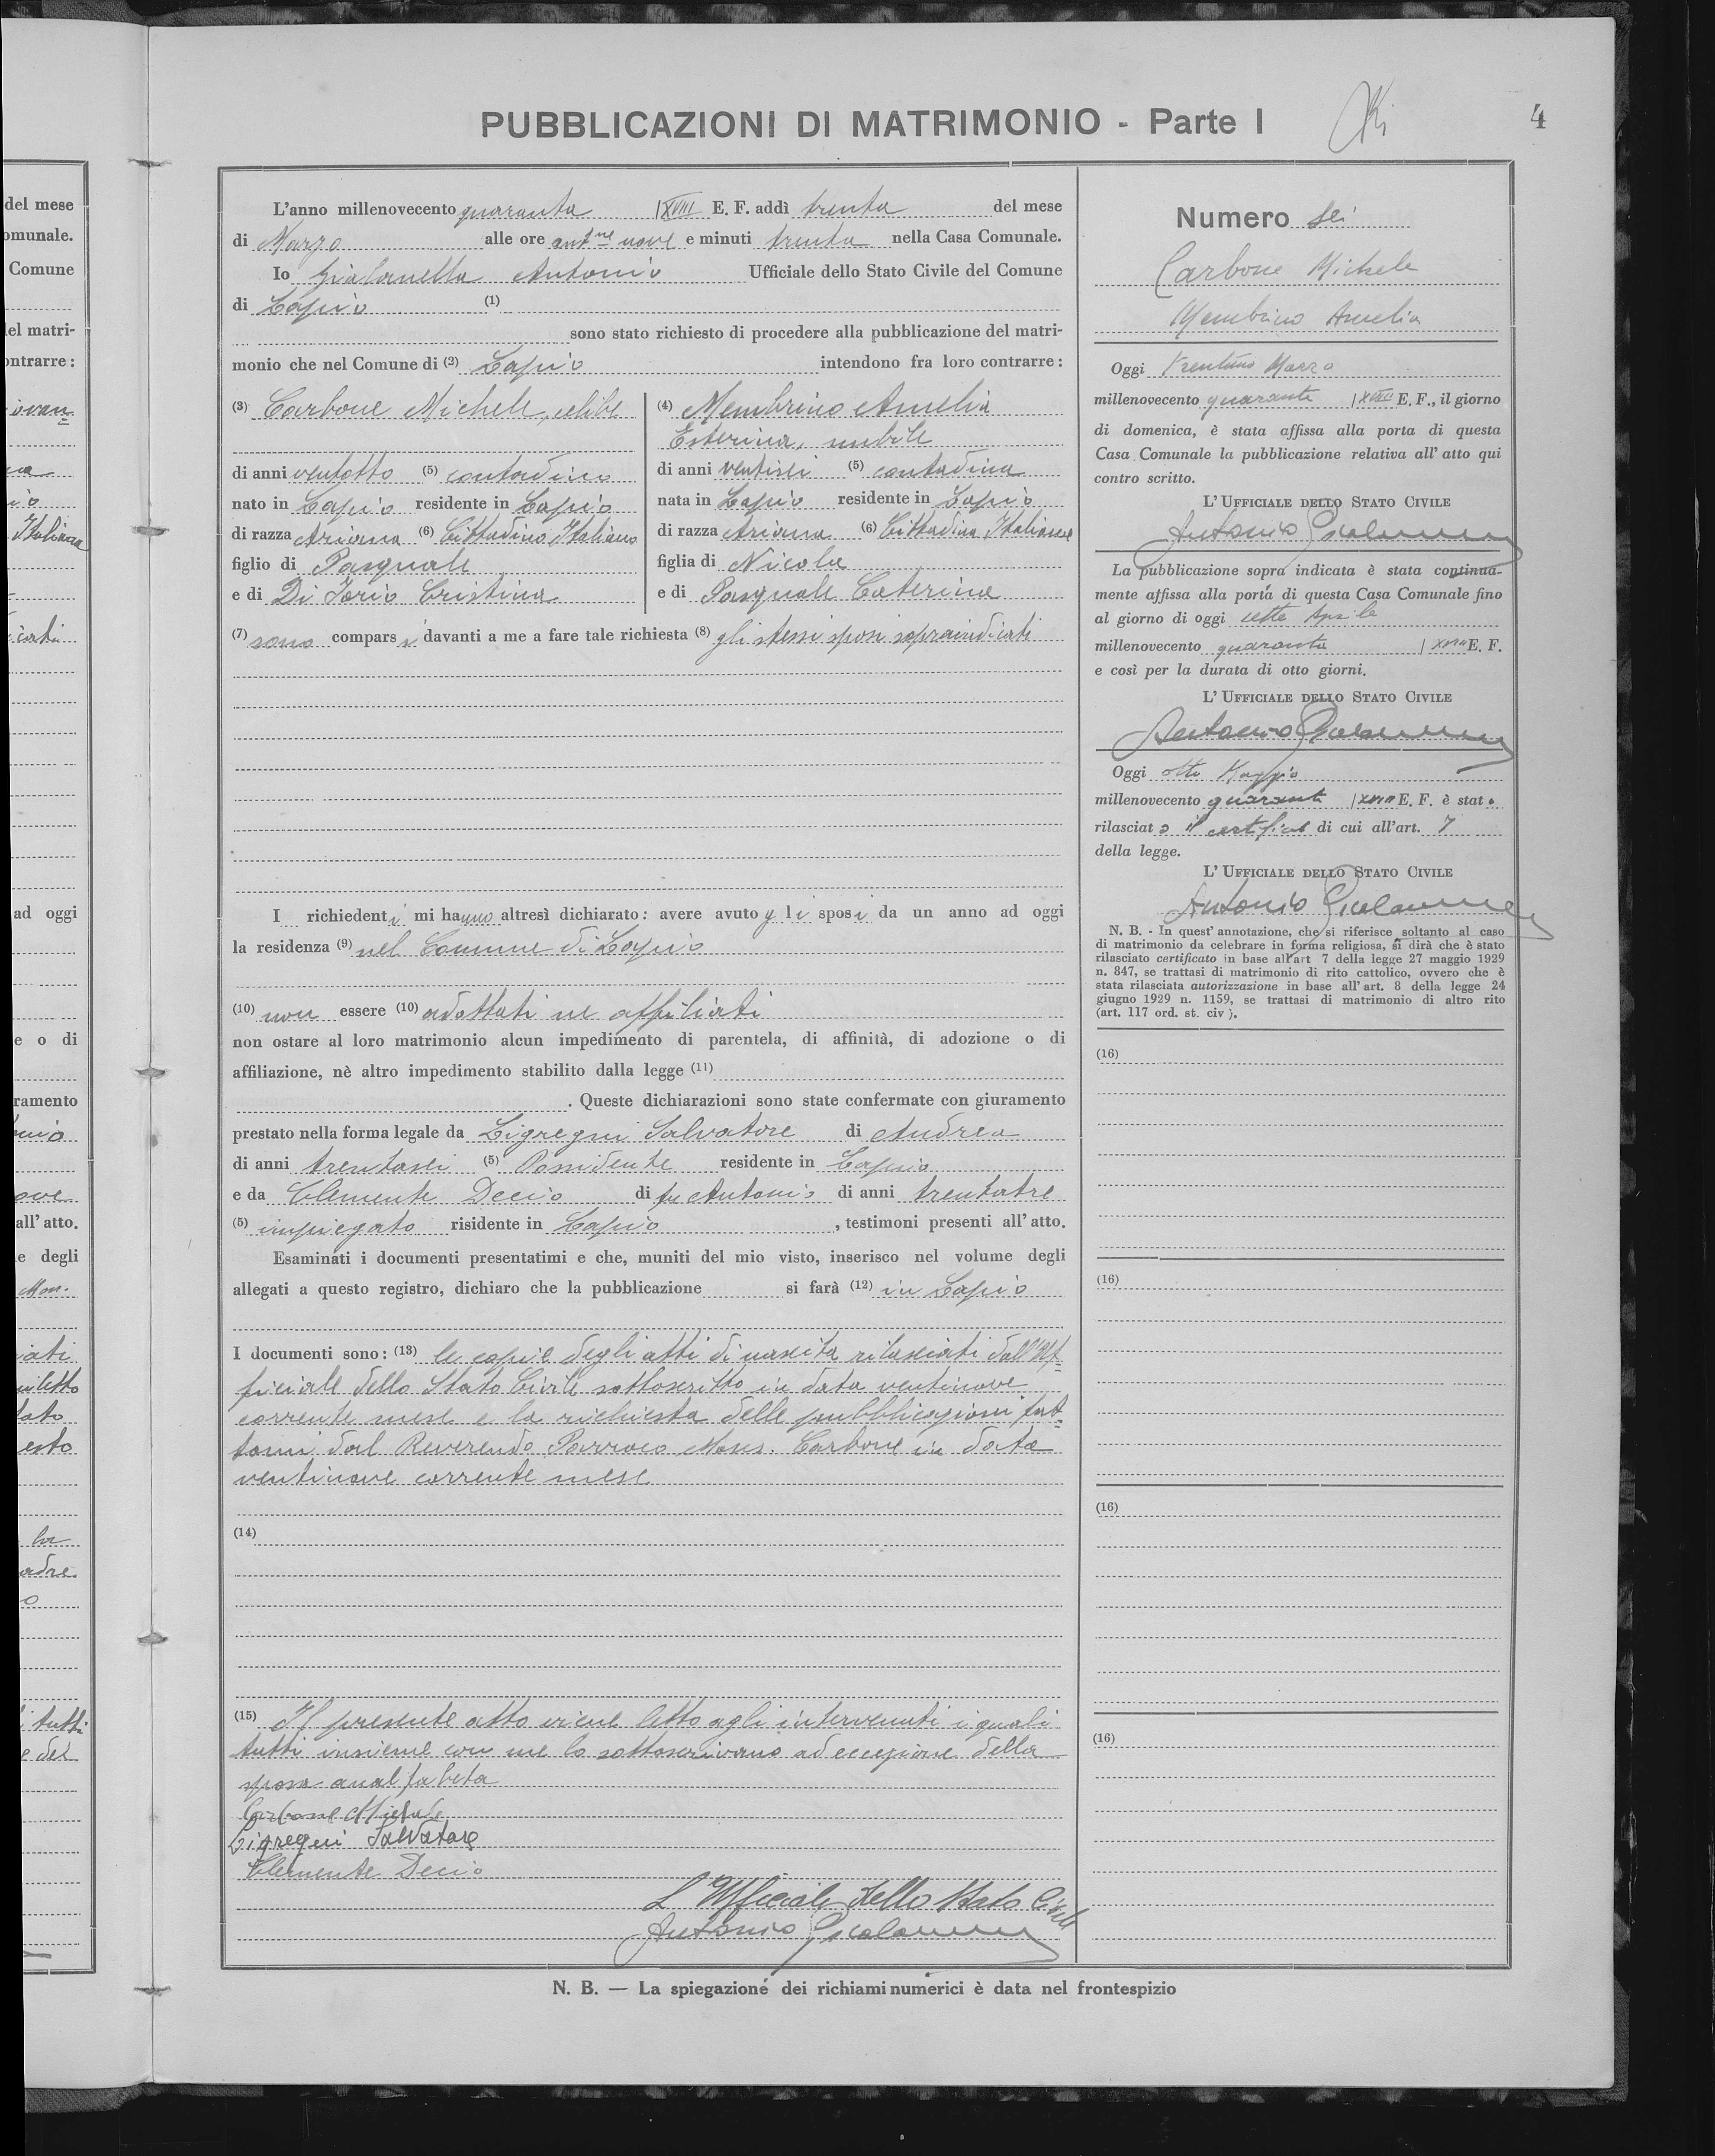 PUBBLICAZIONI DI MATRIMONIO - Parte I
4
L'anno millenovecento quaranta / XVIII E. F. addì trenta del mese
di Marzo alle ore antne nove e minuti trenta nella Casa Comunale.
Io Antonio Ufficiale dello Stato Civile del Comune
di Lapio (1)
sono stato richiesto di procedere alla pubblicazione del matri-
monio che nel Comune di (2) Lapio intendono fra loro contrarre:
(3) Carbone Michele, celibe
di anni ventotto (5) contadino
nato in Lapio residente in Lapio
di razza Ariana (6) Cittadino Italiano
figlio di Pasquale
e di Di Iorio Cristina
(4) Membrino Amelia
Esterina, nubile
di anni ventisei (5) contadina
nata in Lapio residente in Lapio
di razza Ariana (6) Cittadina Italiana
figlia di Nicola
e di Pasquale Caterina
(7) sono comparsi davanti a me a fare tale richiesta (8) gli stessi sposi sopraindicati
I richiedenti mi hanno altresì dichiarato: avere avuto gli sposi da un anno ad oggi
la residenza (9) nel Comune di Lapio
(10) non essere (10) adottati ne affiliati
non ostare al loro matrimonio alcun impedimento di parentela, di affinità, di adozione o di
affiliazione, nè altro impedimento stabilito dalla legge (11)
. Queste dichiarazioni sono state confermate con giuramento
prestato nella forma legale da Ligregni Salvatore di Andrea
di anni trentasei (5) Possidente residente in Lapio
e da Clemente Decio di fu Antonio di anni trentatre
(5) impiegato risidente in Lapio , testimoni presenti all' atto.
Esaminati i documenti presentatimi e che, muniti del mio visto, inserisco nel volume degli
allegati a questo registro, dichiaro che la pubblicazione si farà (12) in Lapio
I documenti sono: (13) le copie degli atti di nascita rilasciati dall'Uf=
ficiale dello Stato Civile sottoscritto in data ventinove
corrente mese e la richiesta delle pubblicazioni fat=
tami dal Reverendo Parroco Mons. Carbone in data
ventinove corrente mese
(14)
(15) Il presente atto viene letto agli intervenuti i quali
tutti insieme con me lo sottoscrivono ad eccezione della
sposa analfabeta
Carbone Michele
Ligregni Salvatore
Clemente Decio
L'Ufficiale dello Stato Civile
Antonio
N. B. — La spiegazione dei richiami numerici è data nel frontespizio
Numero sei
Carbone Michele
Membrino Amelia
Oggi trentuno Marzo
millenovecento quaranta / XVIII E. F., il giorno
di domenica, è stata affissa alla porta di questa
Casa Comunale la pubblicazione relativa all' atto qui
contro scritto.
L' UFFICIALE DELLO STATO CIVILE
Antonio
La pubblicazione sopra indicata è stata continua-
mente affissa alla porta di questa Casa Comunale fino
al giorno di oggi sette Aprile
millenovecento quaranta / XVIII E. F.
e così per la durata di otto giorni.
L' UFFICIALE DELLO STATO CIVILE
Antonio
Oggi otto Maggio
millenovecento quaranta / XVIII E. F. è stato
rilasciato il certificato di cui all'art. 7
della legge.
L' UFFICIALE DELLO STATO CIVILE
Antonio
N. B. - In quest' annotazione, che si riferisce soltanto al caso
di matrimonio da celebrare in forma religiosa, si dirà che è stato
rilasciato certificato in base all'art 7 della legge 27 maggio 1929
n. 847, se trattasi di matrimonio di rito cattolico, ovvero che è
stata rilasciata autorizzazione in base all' art. 8 della legge 24
giugno 1929 n. 1159, se trattasi di matrimonio di altro rito
(art. 117 ord. st. civ ).
(16)
(16)
(16)
(16)